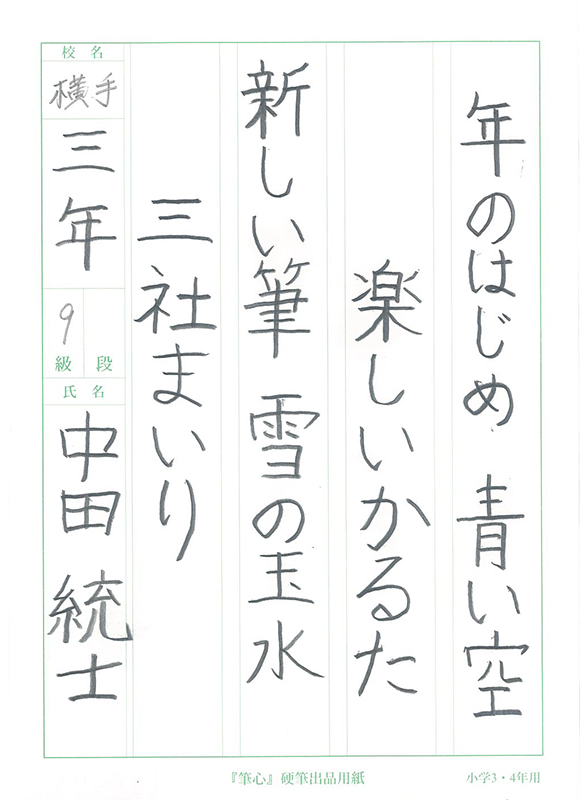 年のはじめ 青い空
楽しいかるた
新しい筆 雪の玉水
三社まいり
校名
横手
三年
9
級 段
氏名
中田 統士
『筆心』硬筆出品用紙
小学3・4年用